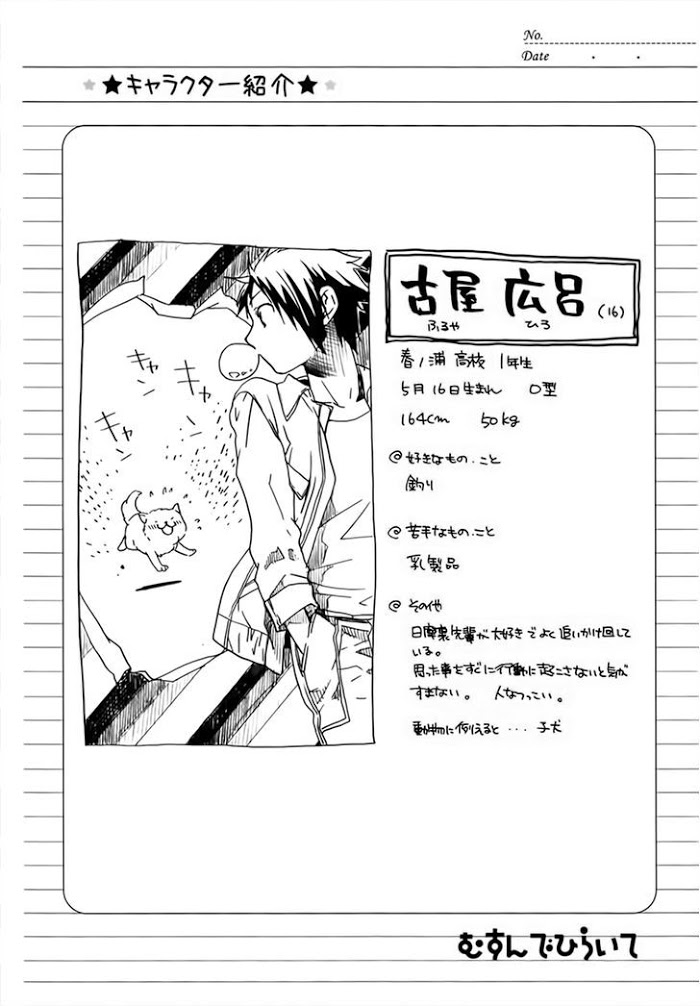 No.
Date
★★キャラクター紹介★★
古屋 広呂(16)
ふるや ひろ
春ノ浦高校 1年生
5月16日生まれ O型
164cm 50kg
@ 好きなもの・こと
釣り
@ 苦手なもの・こと
乳製品
@ その他
先輩が大好きでよく追いかけ回して
いる。
思った事をすぐに行動に起こさないと気が
すまない。 人なつっこい。
動物に例えると・・・子犬
キャン
キャン
キャン
むすんでひらいて